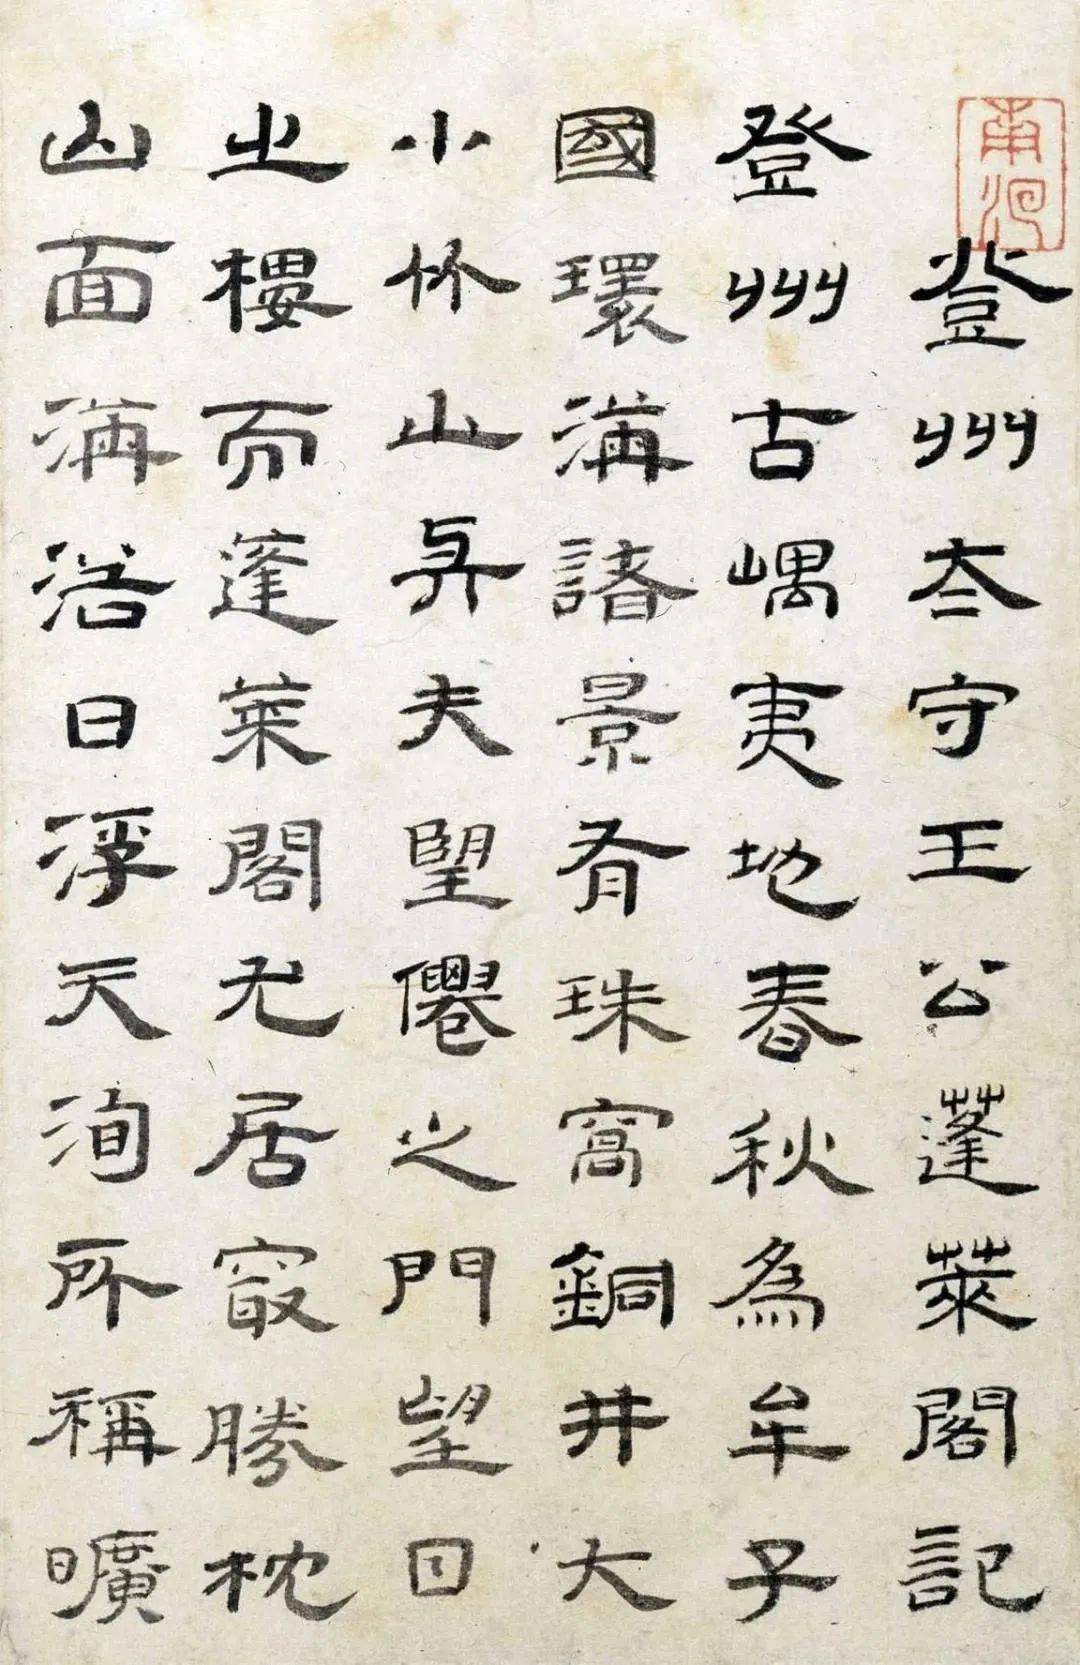 登州太守王公蓬萊閣記
登州古嵎夷地春秋為牟子
國環海諸景有珠窩銅井大
小竹山與夫望僊之門望日
之樓而蓬萊閣尤居最勝枕
山面海浴日浮天洵所稱曠